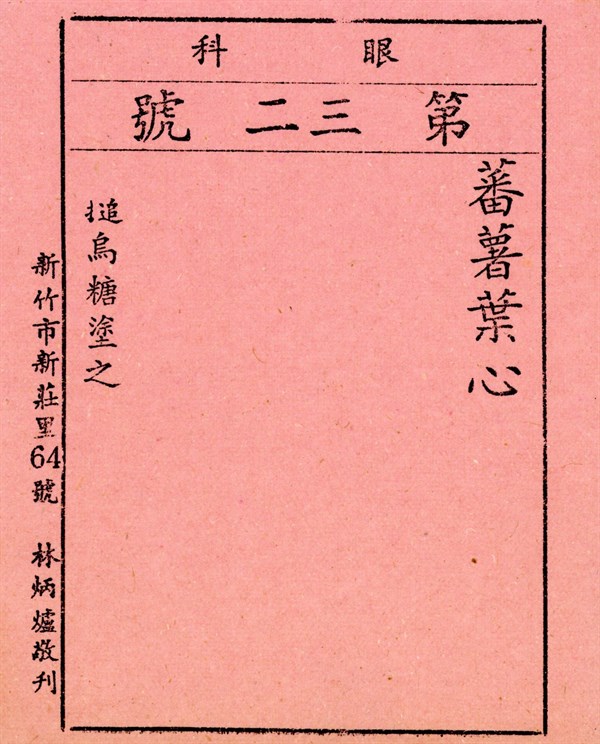 眼科
第三二號
蕃薯葉心
搥烏糖塗之
新竹市新莊里64號 林炳爐敬刊